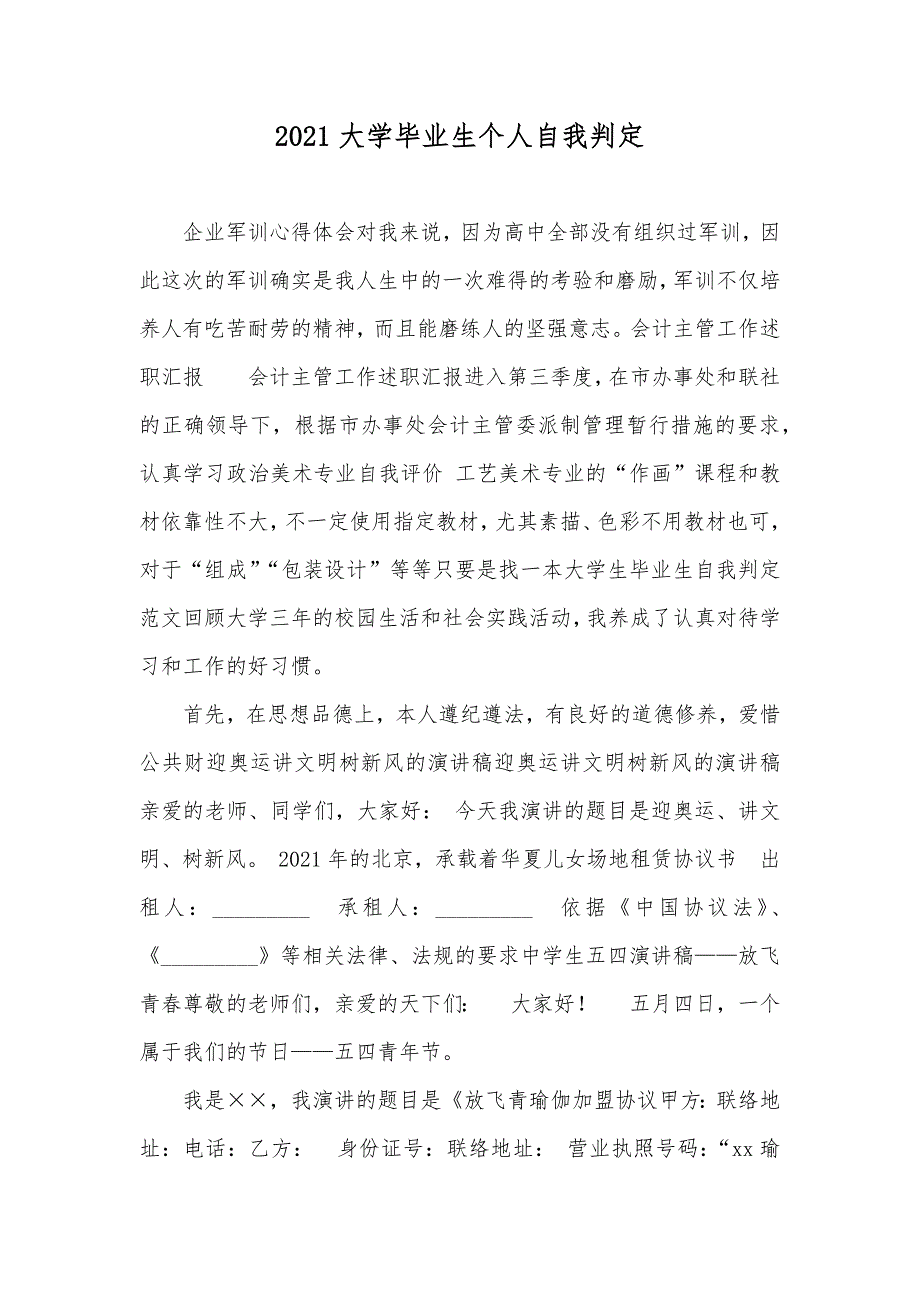 2021 大学毕业生个人自我判定
企业军训心得体会对我来说，因为高中全部没有组织过军训，因
此这次的军训确实是我人生中的一次难得的考验和磨励，军训不仅培
养人有吃苦耐劳的精神，而且能磨练人的坚强意志。会计主管工作述
职汇报　　会计主管工作述职汇报进入第三季度，在市办事处和联社
的正确领导下，根据市办事处会计主管委派制管理暂行措施的要求，
认真学习政治美术专业自我评价 工艺美术专业的“作画”课程和教
材依靠性不大，不一定使用指定教材，尤其素描、色彩不用教材也可，
对于“组成”“包装设计”等等只要是找一本大学生毕业生自我判定
范文回顾大学三年的校园生活和社会实践活动，我养成了认真对待学
习和工作的好习惯。
首先，在思想品德上，本人遵纪遵法，有良好的道德修养，爱惜
公共财迎奥运讲文明树新风的演讲稿迎奥运讲文明树新风的演讲稿
亲爱的老师、同学们，大家好： 今天我演讲的题目是迎奥运、讲文
明、树新风。 2021 年的北京，承载着华夏儿女场地租赁协议书　出
租人：_________　承租人：_________　依据《中国协议法》、
《_________》等相关法律、法规的要求中学生五四演讲稿——放飞
青春尊敬的老师们，亲爱的天下们：　大家好！　五月四日，一个
属于我们的节日——五四青年节。
我是××，我演讲的题目是《放飞青瑜伽加盟协议甲方：联络地
址：电话：乙方：　身份证号：联络地址： 营业执照号码：“xx 瑜